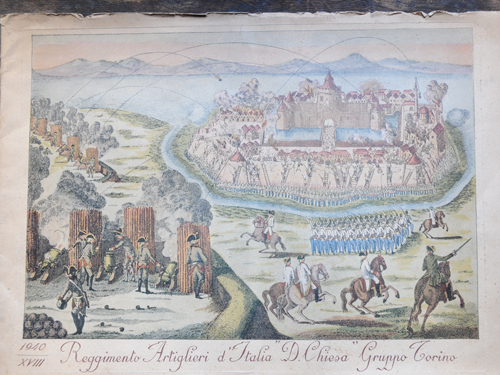 1940
XVIII
Reggimento Artiglieri d'Italia "D. Chiesa" Gruppo Torino